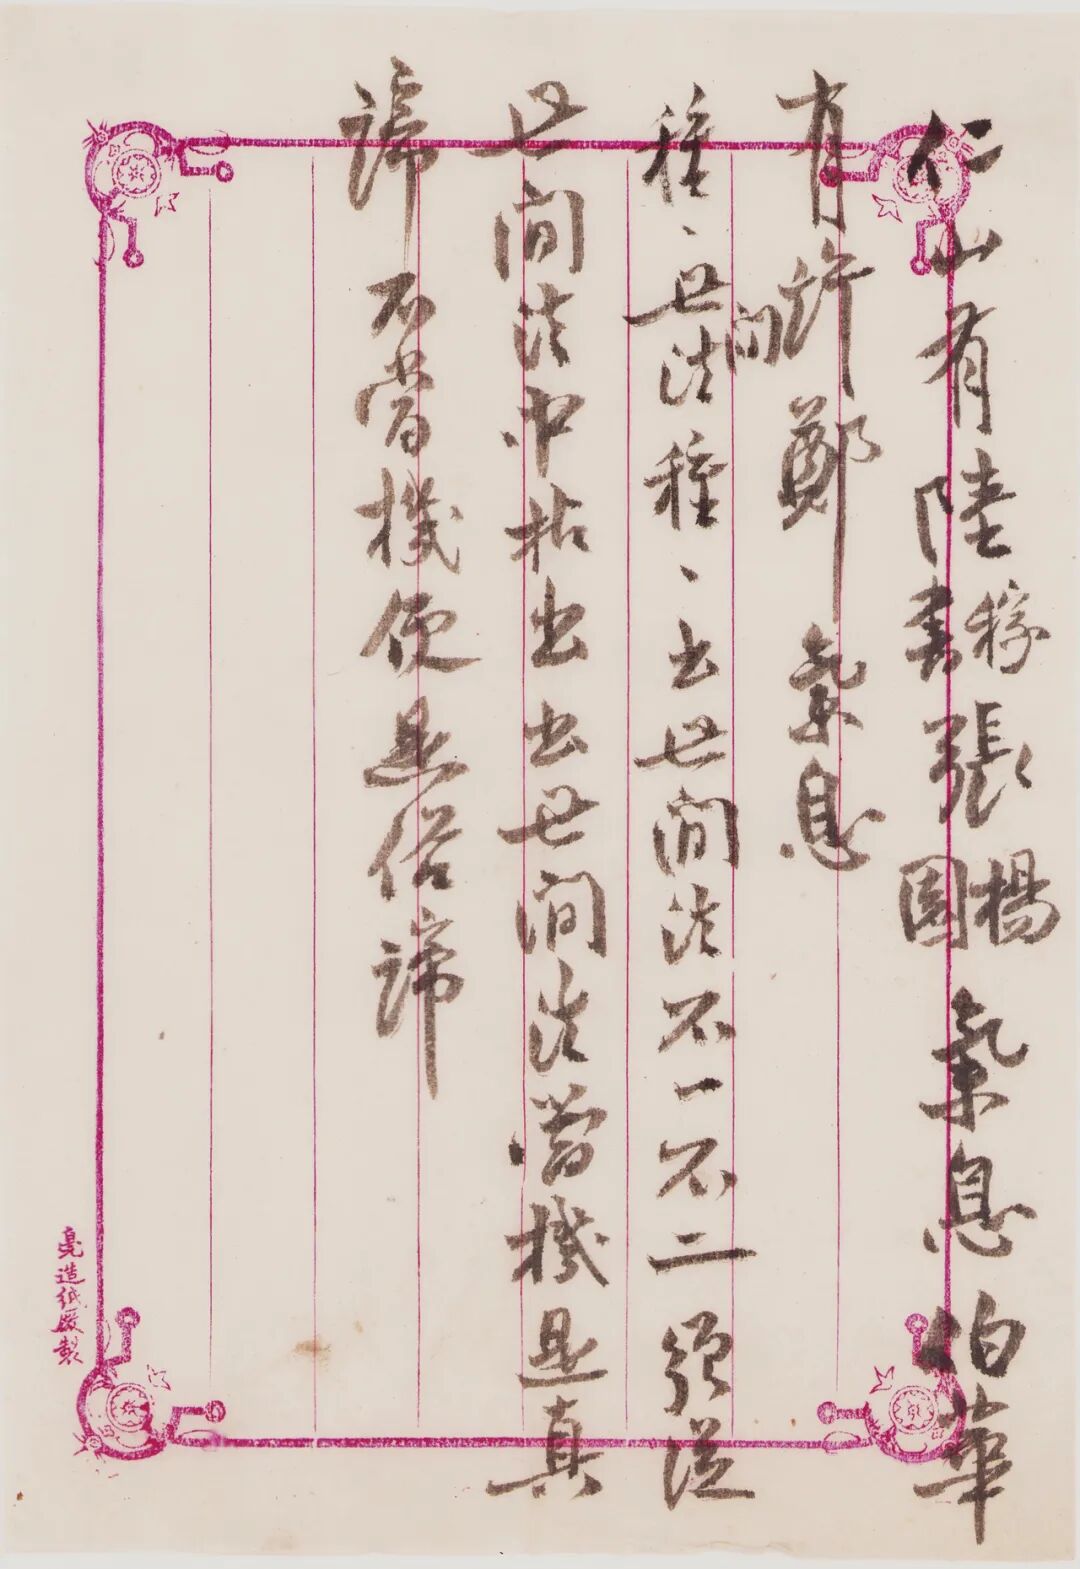 仁山有陸稼書張楊園氣息伯華
有許鄭氣息
種、世間法種、出世間法不一不二須從
世間法中拈出出世間法當機是真
諦不當機便是俗諦
亮造紙廠製